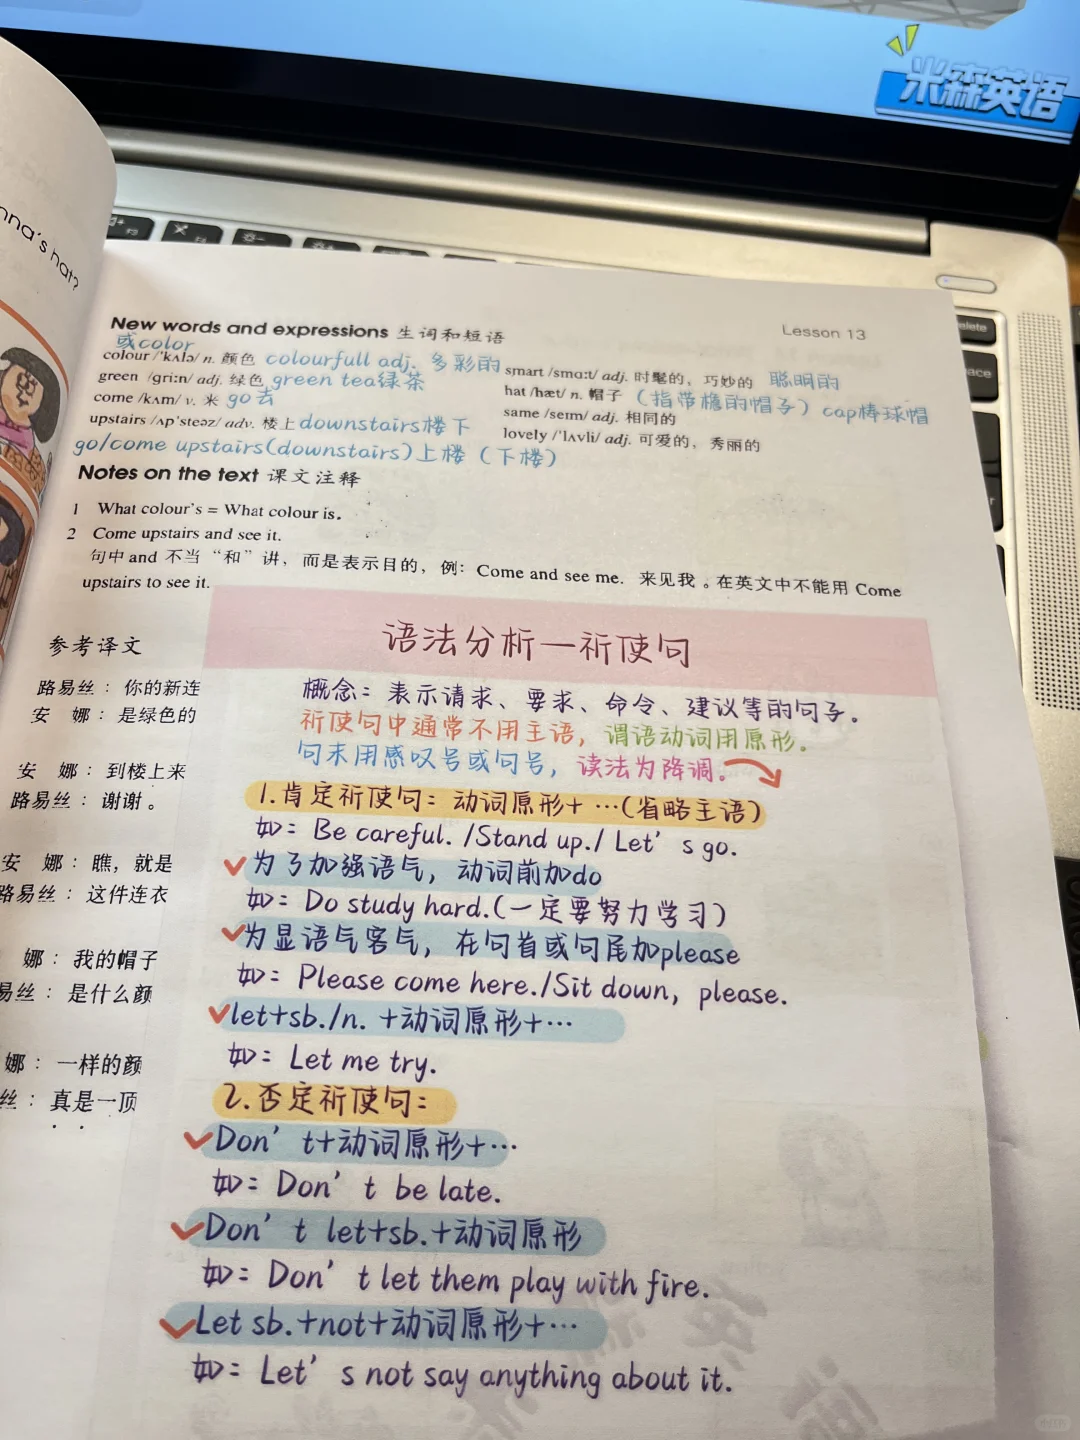 米森英语
nna's hat?
New words and expressions 生词和短语
Lesson 13
或color
colour /'kʌlə/ n. 颜色 colourfull adj. 多彩的
green /griːn/ adj. 绿色 green tea绿茶
come /kʌm/ v. 来 go去
upstairs /ʌp'steəz/ adv. 楼上 downstairs楼下
go/come upstairs(downstairs)上楼（下楼）
smart /smɑːt/ adj. 时髦的，巧妙的 聪明的
hat /hæt/ n. 帽子（指带檐的帽子）cap棒球帽
same /seɪm/ adj. 相同的
lovely /'lʌvli/ adj. 可爱的，秀丽的
Notes on the text 课文注释
1 What colour's = What colour is.
2 Come upstairs and see it.
句中 and 不当“和”讲，而是表示目的，例：Come and see me. 来见我。在英文中不能用 Come
upstairs to see it.
参考译文
路易丝：你的新连
安 娜：是绿色的
安 娜：到楼上来
路易丝：谢谢。
安 娜：瞧，就是
路易丝：这件连衣
娜：我的帽子
易丝：是什么颜
娜：一样的颜
丝：真是一顶
语法分析—祈使句
概念：表示请求、要求、命令、建议等的句子。
祈使句中通常不用主语，谓语动词用原形。
句末用感叹号或句号，读法为降调。
1.肯定祈使句：动词原形+…(省略主语)
如：Be careful. /Stand up./ Let's go.
为了加强语气，动词前加do
如：Do study hard.(一定要努力学习)
为显语气客气，在句首或句尾加please
如：Please come here./Sit down, please.
let+sb./n. +动词原形+…
如：Let me try.
2.否定祈使句：
Don't+动词原形+…
如：Don't be late.
Don't let+sb.+动词原形
如：Don't let them play with fire.
Let sb.+not+动词原形+…
如：Let's not say anything about it.